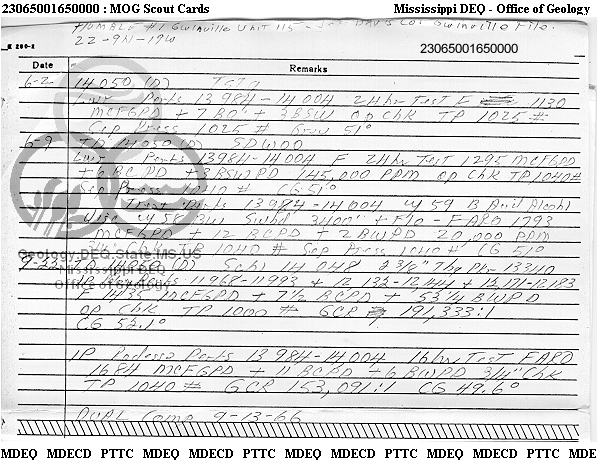 23065001650000 : MOG Scout Cards Mississippi DEQ - Office of Geology
Humble #1 Gwinville Unit 115 - Jeff Davis Co. Gwinville File.
22-9N-19W
K 200-2 23065001650000
Date Remarks
6-2 14,050 (D) TSTg
Lwr Perfs 13984-14004 24hr Test F 1130
MCFGPD + 7 BO + 3BSW op Chk TP 1025#
Sep Press 1025# Grav 51°
6-9 TD 14050 (D) SDWOO
Lwr Perfs 13984-14004 F 24hr Test 1295 MCFGPD
+ 6 BCPD + BSWPD 145,000 PPM op Chk TP 1040#
Sep Press 1010# CG 51°
Treat Perfs 13984-14004 w/ 59 B Acid Alcohl
w/ 58 BW Swbd 3400' + Flo - FARO 1793
MCFGPD + 12 BCPD + 2BWPD 20,000 PPM
TP 1040# Sep Press 1040# CG 51°
Geology.DEQ.State.MS.US
Mississippi DEQ
Office of Geology
9-22 TD (D) Schl 14,048 2 3/8" Tbg Pkr 13340
IP Perfs 11968-11993 + 12,132-12,144 + 12,171-12,183
F 1435 MCFGPD + 7½ BCPD + 53¼ BWPD
op Chk TP 1000# GCR 191,333:1
CG 52.1°
IP Rodessa Perfs 13984-14004 16hr Test FARO
1684 MCFGPD + 11 BCPD + 6 BWPD 3/4" Chk
TP 1040# GCR 153,091:1 CG 49.6°
Dual Comp 9-13-66
MDEQ MDECD PTTC MDEQ MDECD PTTC MDEQ MDECD PTTC MDEQ MDECD PTTC MDE